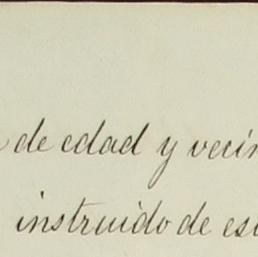 de edad y vecin
instruido de es